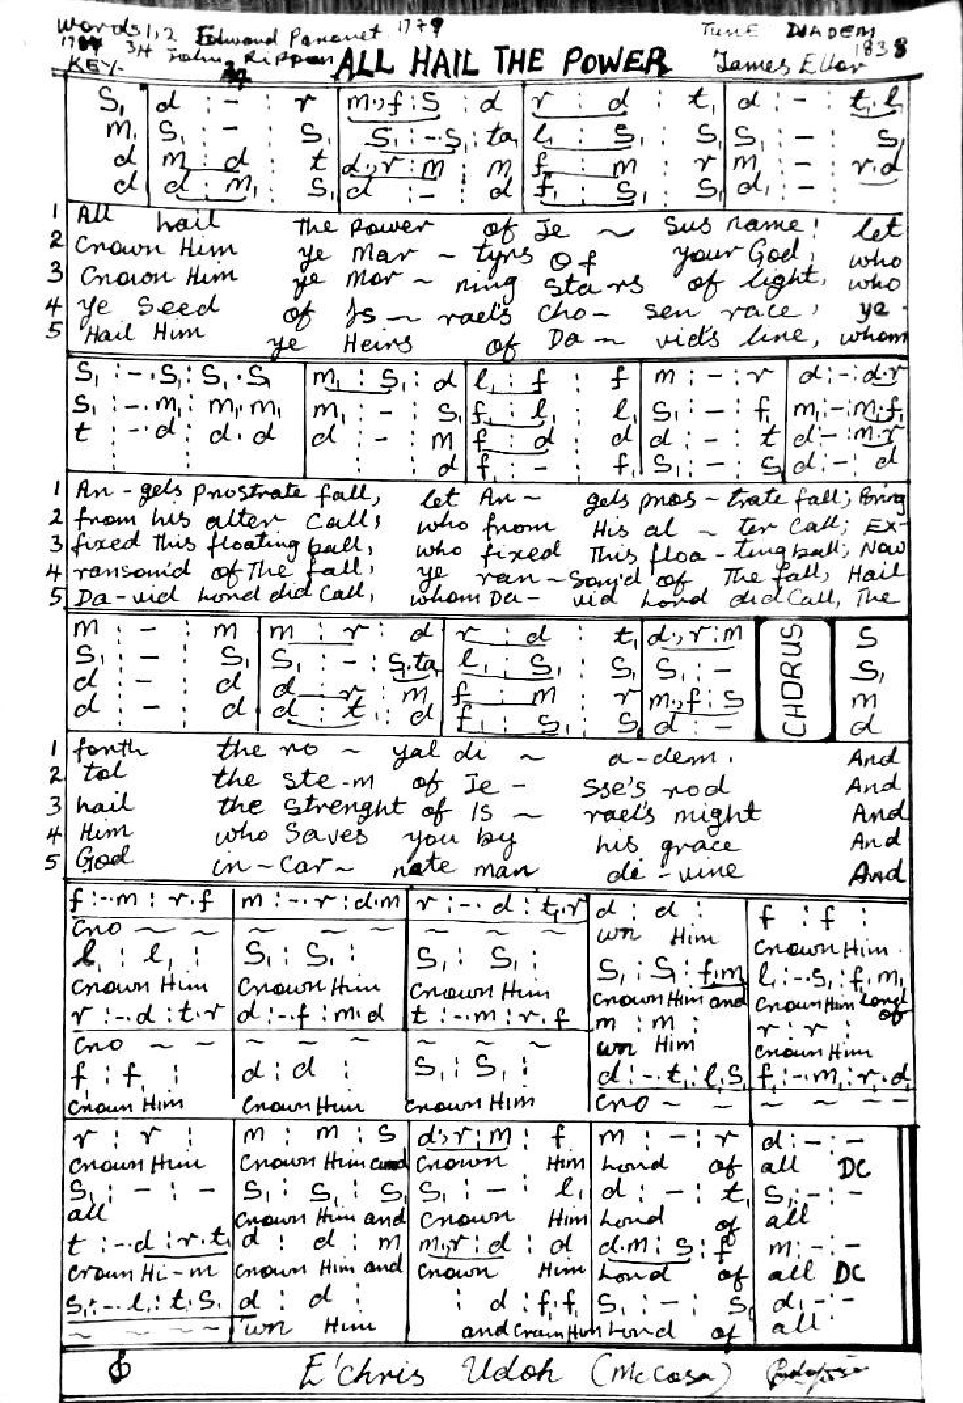 Words 1,2 Edward Peronet 1779
TUNE DIADEM
3,4 John Rippon
1838
KEY.
ALL HAIL THE POWER
James Ellor
S₁ | d : - : r | m.,f : S : d | r : d : t₁ | d : - : t₁.l₁
m₁ | S₁ : - : S₁ | S₁ : -.S₁ : ta₁ | l₁ : S₁ : S₁ | S₁ : - : S₁
d | m : d : t | d.,r : m : m | f : m : r | m : - : r.d
d | d : m₁ : S₁ | d : - : d | f₁ : S₁ : S₁ | d₁ : - :
1 All hail the power of Je ~ sus name! let
2 Crown Him ye Mar ~ tyrs Of your God, who
3 Crown Him ye Mor ~ ning stars of light, who
4 Ye Seed of Is ~ rael's cho - sen race, ye
5 Hail Him ye Heirs of Da ~ vid's line, whom
S₁ : -.S₁ : S₁.S₁ | m₁ : S₁ : d | l₁ : f : f | m : - : r | d : - : d.r
S₁ : -.m₁ : m₁.m₁ | m₁ : - : S₁ | f₁ : l₁ : l₁ | S₁ : - : f₁ | m₁ : - : m₁.f₁
t : -.d : d.d | d : - : m | f : d : d | d : - : t | d : - : m.r
: : | : d | f₁ : - : f₁ | S₁ : - : S₁ | d : - : d
1 An - gels prostrate fall, let An ~ gels pros ~ trate fall; Bring
2 from his alter Call, who from His al ~ ter Call; Ex-
3 fixed this floating ball, who fixed This floa - ting ball; Now
4 ransom'd of The fall, ye ran ~ som'd of The fall, Hail
5 Da - vid Lord did Call, whom Da - vid Lord did Call, The
m : - : m | m : r : d | r : d : t₁ | d.,r : m | CHORUS | S
S₁ : - : S₁ | S₁ : - : S₁.ta₁ | l₁ : S₁ : S₁ | S₁ : - | S₁
d : - : d | d : r : m | f : m : r | m.,f : S | m
d : - : d | d : t₁ : d | f₁ : S₁ : S₁ | d : - | d
1 forth the ro ~ yal di ~ a-dem. And
2 tol the ste-m of Je - sse's rod And
3 hail the strenght of Is ~ rael's might And
4 Him who Saves you by his grace And
5 God in - Car ~ nate man di - vine And
f : -.m : r.f | m : -.r : d.m | r : -.d : t₁.r | d : d : | f : f :
Cro ~ ~ ~ ~ ~ ~ ~ ~ wn Him Crown Him
l₁ : l₁ : | S₁ : S₁ : | S₁ : S₁ : | S₁ : S₁ : f₁.m₁ | l₁ : -.S₁ : f₁.m₁
Crown Him Crown Him Crown Him Crown Him and Crown Him Lord of
r : -.d : t.r | d : -.f : m.d | t : -.m : r.f | m : m : | r : r :
Cro ~ ~ ~ ~ ~ ~ ~ ~ wn Him Crown Him
f : f₁ : | d : d : | S₁ : S₁ : | d : -.t₁ : l₁.S₁ | f₁ : -.m₁ : r₁.d₁
Crown Him Crown Him Crown Him Cro ~ ~ ~ ~ ~ ~
r : r : | m : m : S | d.,r : m : f | m : - : r | d : - : -
Crown Him Crown Him and Crown Him Lord of all DC
S₁ : - : - | S₁ : S₁ : S₁ | S₁ : - : l₁ | d : - : t₁ | S₁ : - : -
all Crown Him and Crown Him Lord of all
t : -.d : r.t₁ | d : d : m | m.,r : d : d | d.m : S : f | m : - : -
Crown Hi-m Crown Him and Crown Him Lord of all DC
S₁ : -.l₁ : t₁.S₁ | d : d : | : d : f.f | S₁ : - : S₁ | d₁ : - : -
~ ~ ~ ~ wn Him and Crown Him Lord of all
E'chris Udoh (McCasa)